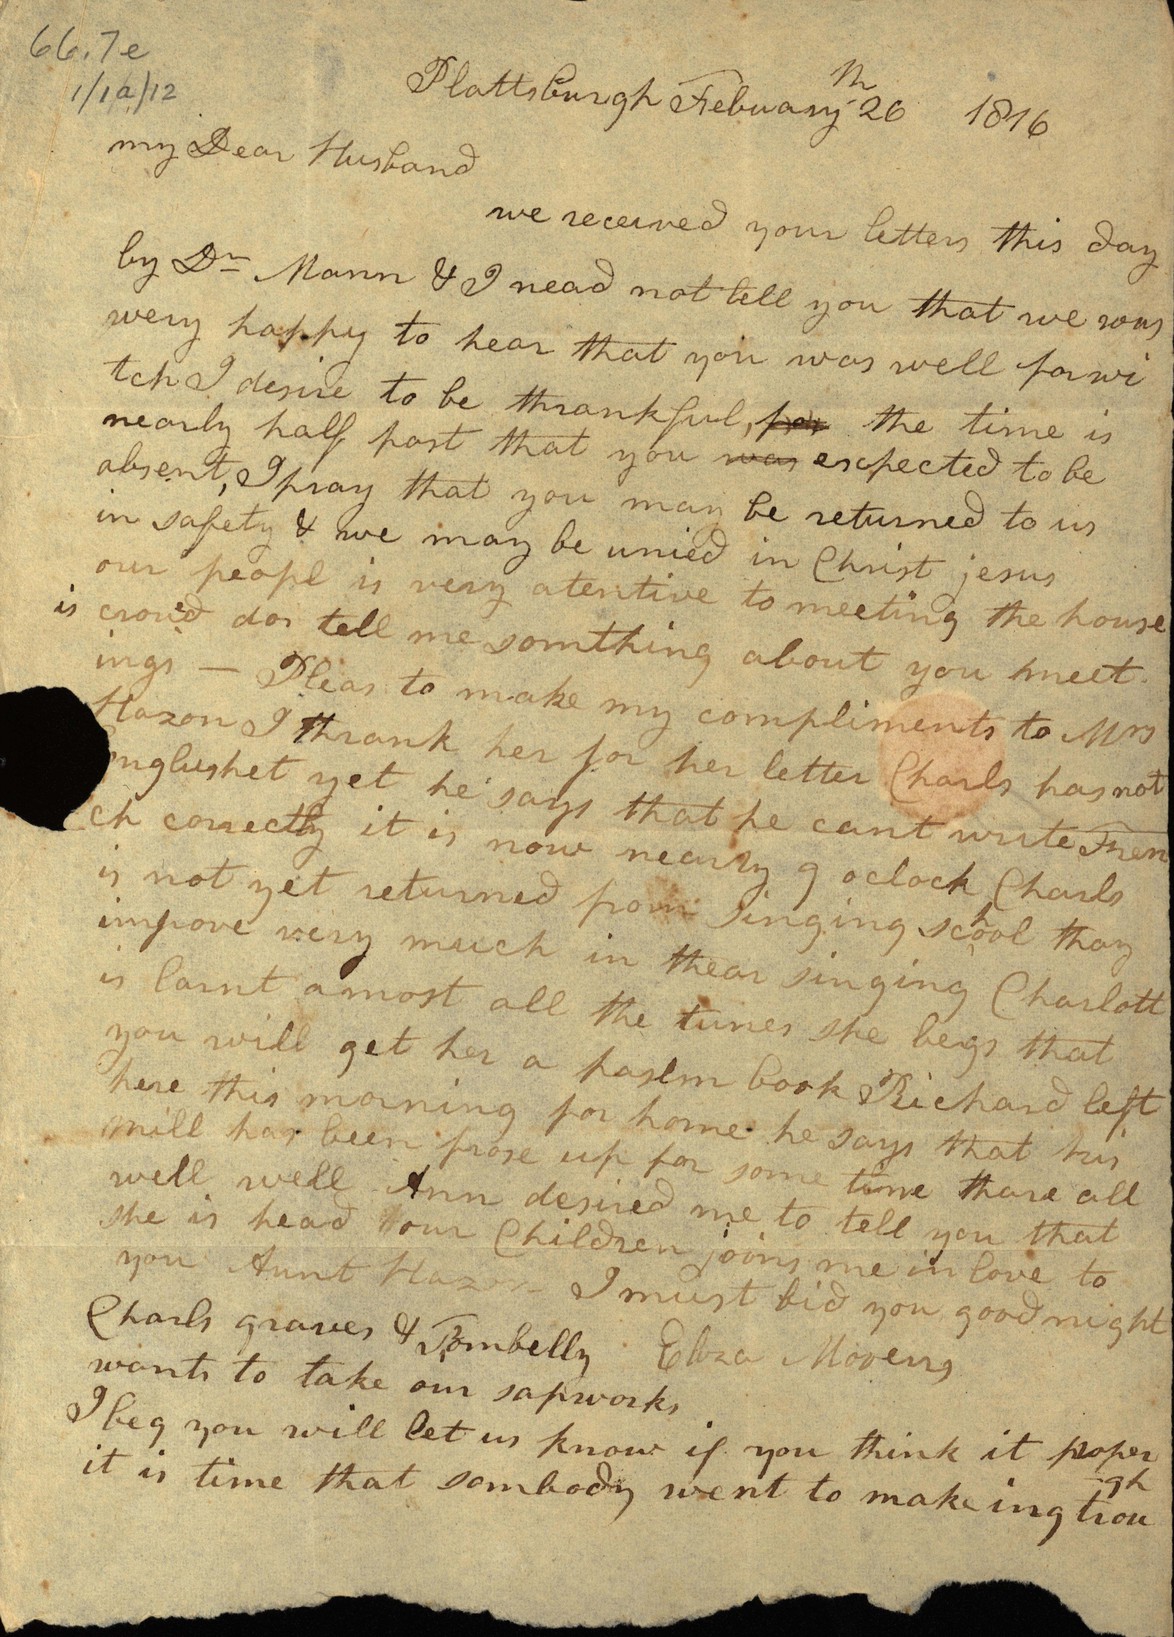 66.7e
1/1a/12
Plattsburgh Febuary 26th 1816
my Dear Husband
we received your letters this day
by Dr Mann & I nead not tell you that we was
wery happy to hear that you was well for wi
tch I desire to be thrankful, for the time is
nearly half past that you was expected to be
absent, I pray that you may be returned to us
in safety & we may be unied in Christ jesus
our peopl is very atentive to meeting the house
is crowd dos tell me somthing about you meet
ings — Pleas to make my compliments to Mrs
Hazon I thrank her for her letter Charls has not
nglushet yet he says that he cant write Fren
ch correctly it is now nearly 9 oclock Charls
is not yet returned from singing school thay
improve very much in thear singing Charlott
is larnt amost all the tunes she begs that
you will get her a paslm book Richard left
here this morning for home he says that his
mill has been frose up for some time thare all
well well Ann desired me to tell you that
she is head our Children joins me in love to
you Aunt Hazon I must bid you good night
Charls graves & Tombelly Eliza Mooers
wants to take our sapworks
I beg you will let us know if you think it proper
it is time that sombody went to makeing trou
gh